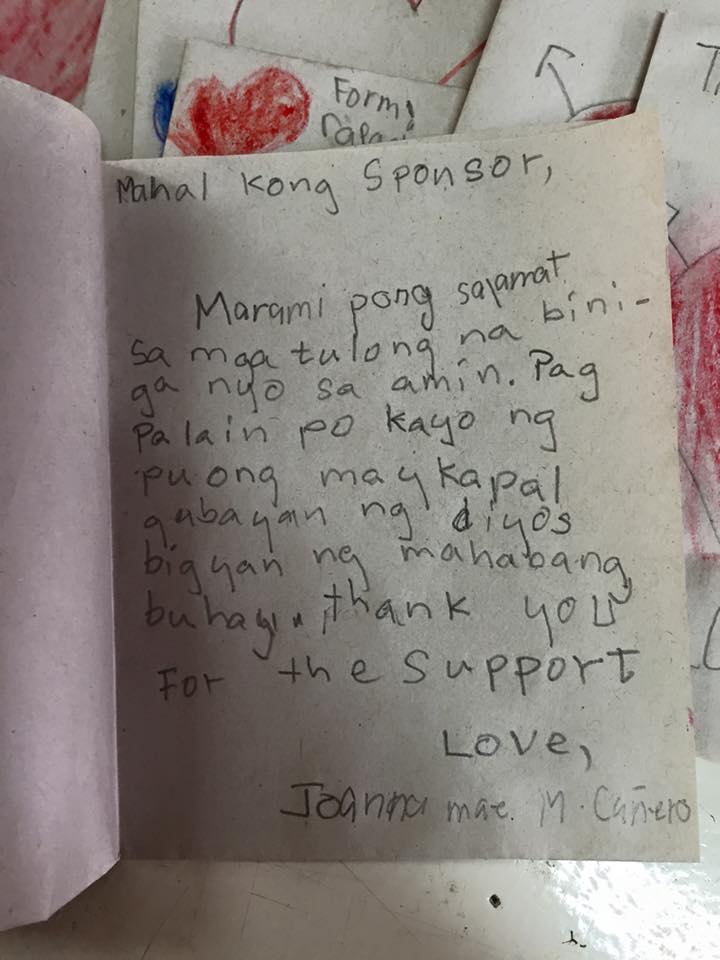 Form
Mahal kong Sponsor,
Marami pong salamat
sa mga tulong na bini-
ga nyo sa amin. Pag
Palain po kayo ng
puong may kapal
gubayan ng diyos
bigyan ng mahabang
buhay. thank you
For the Support
Love,
Joanna mae. M. Cañero